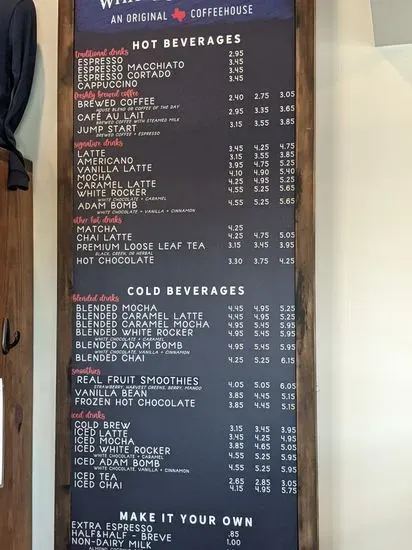 AN ORIGINAL COFFEEHOUSE
HOT BEVERAGES
traditional drinks
ESPRESSO 2.95
ESPRESSO MACCHIATO 3.45
ESPRESSO CORTADO 3.45
CAPPUCCINO 3.45
freshly brewed coffee
BREWED COFFEE 2.40 2.75 3.05
HOUSE BLEND OR COFFEE OF THE DAY
CAFÉ AU LAIT 2.95 3.35 3.65
BREWED COFFEE WITH STEAMED MILK
JUMP START 3.15 3.55 3.85
BREWED COFFEE + ESPRESSO
signature drinks
LATTE 3.45 4.25 4.75
AMERICANO 3.15 3.55 3.85
VANILLA LATTE 3.95 4.75 5.25
MOCHA 4.10 4.90 5.40
CARAMEL LATTE 4.25 4.95 5.25
WHITE ROCKER 4.55 5.25 5.65
WHITE CHOCOLATE + CARAMEL
ADAM BOMB 4.55 5.25 5.65
WHITE CHOCOLATE + VANILLA + CINNAMON
other hot drinks
MATCHA 4.25
CHAI LATTE 4.25 4.75 5.05
PREMIUM LOOSE LEAF TEA 3.15 3.45 3.95
BLACK, GREEN, OR HERBAL
HOT CHOCOLATE 3.30 3.75 4.25
COLD BEVERAGES
blended drinks
BLENDED MOCHA 4.45 4.95 5.25
BLENDED CARAMEL LATTE 4.45 4.95 5.25
BLENDED CARAMEL MOCHA 4.95 5.45 5.95
BLENDED WHITE ROCKER 4.95 5.45 5.95
WHITE CHOCOLATE + CARAMEL
BLENDED ADAM BOMB 4.95 5.45 5.95
WHITE CHOCOLATE, VANILLA + CINNAMON
BLENDED CHAI 4.25 5.25 6.15
smoothies
REAL FRUIT SMOOTHIES 4.05 5.05 6.05
STRAWBERRY, HARVEST GREENS, BERRY, MANGO
VANILLA BEAN 3.85 4.45 5.15
FROZEN HOT CHOCOLATE 3.85 4.45 5.15
iced drinks
COLD BREW 3.15 3.45 3.95
ICED LATTE 3.45 4.25 4.95
ICED MOCHA 3.85 4.65 5.05
ICED WHITE ROCKER 4.55 5.25 5.95
WHITE CHOCOLATE + CARAMEL
ICED ADAM BOMB 4.55 5.25 5.95
WHITE CHOCOLATE, VANILLA + CINNAMON
ICED TEA 2.65 2.85 3.05
ICED CHAI 4.15 4.95 5.75
MAKE IT YOUR OWN
EXTRA ESPRESSO .85
HALF&HALF - BREVE 1.00
NON-DAIRY MILK